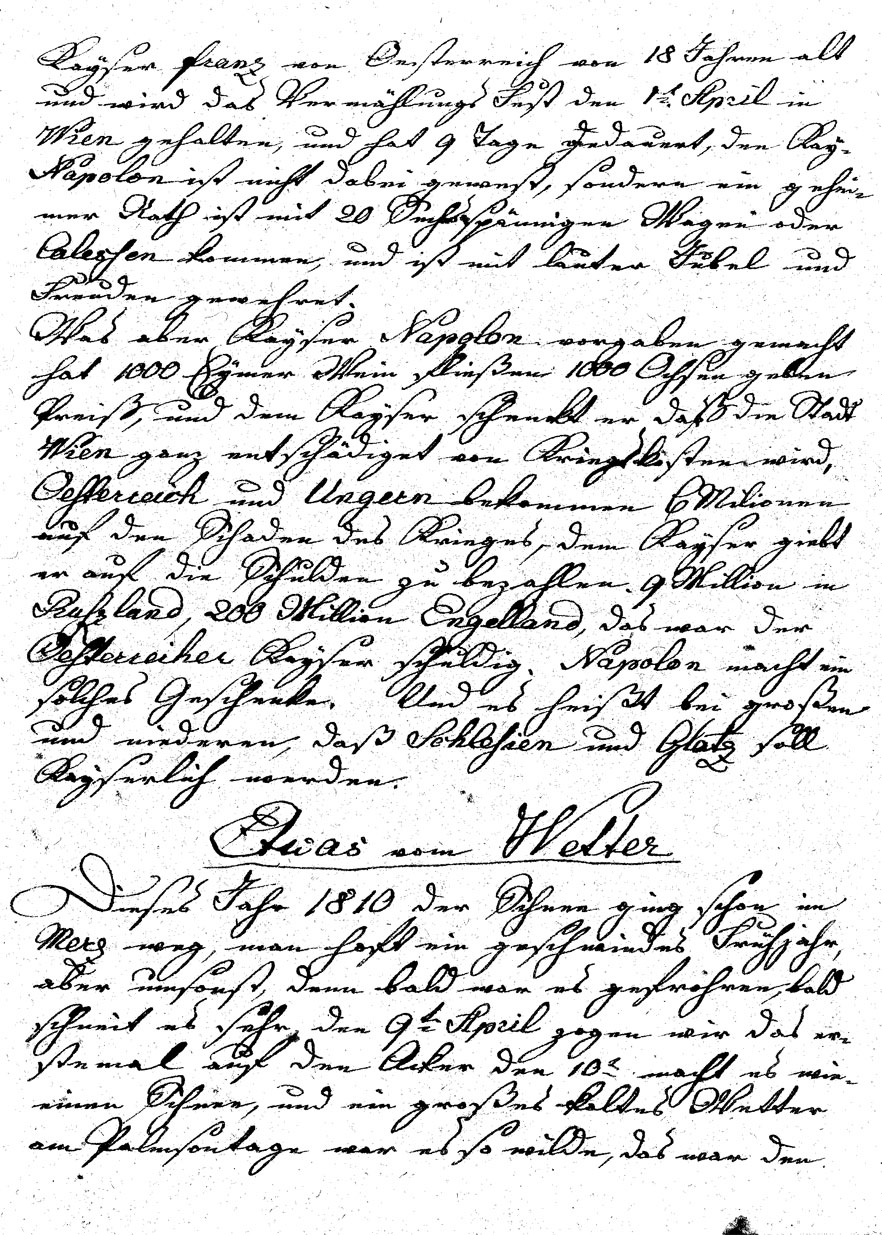 Kayser franz von Oesterreich von 18 Jahren alt
und wird das Vermählungs Fest den 1t. April in
Wien gehalten, und hat 9 Tage gedauert, der Kay-
Napolon ist nicht dabei gewest, sondern ein gehei-
mer Rath ist mit 20 Sechsspännigen Wagen oder
Caleschen kommen, und ist mit lauter Jubel und
Freuden gewehret.
Was aber Kayser Napolon vorgaben gemacht
hat 1000 Eymer Wein fließen 1000 Ochsen geben
Preiß, und dem Kayser schenkt er daß die Stadt
Wien ganz entschädiget von Kriegskosten wird,
Oesterreich und Ungern bekommen 6 Milionen
auf den Schaden des Krieges, dem Kayser giebt
er auf die Schulden zu bezahlen. 9 Million in
Rußland, 200 Million Engelland, das war der
Oesterreiher Kayser schuldig. Napolon macht ein
solches Geschenke. Und es heißt bei großen
und niederen, daß Schlesien und Glatz soll
Kayserlich werden.
Etwas vom Wetter
Dieses Jahr 1810 der Schnee ging schon im
Merz weg, man hoft ein geschwindes Frühjahr,
aber umsonst, denn bald war es gefrohren, bald
schneit es sehr, den 9t April zogen wir das er-
stemal auf den Acker den 10t macht es wie-
einen Schnee, und ein großes kaltes Wetter
am Palmsontage war es so wilde, das war den